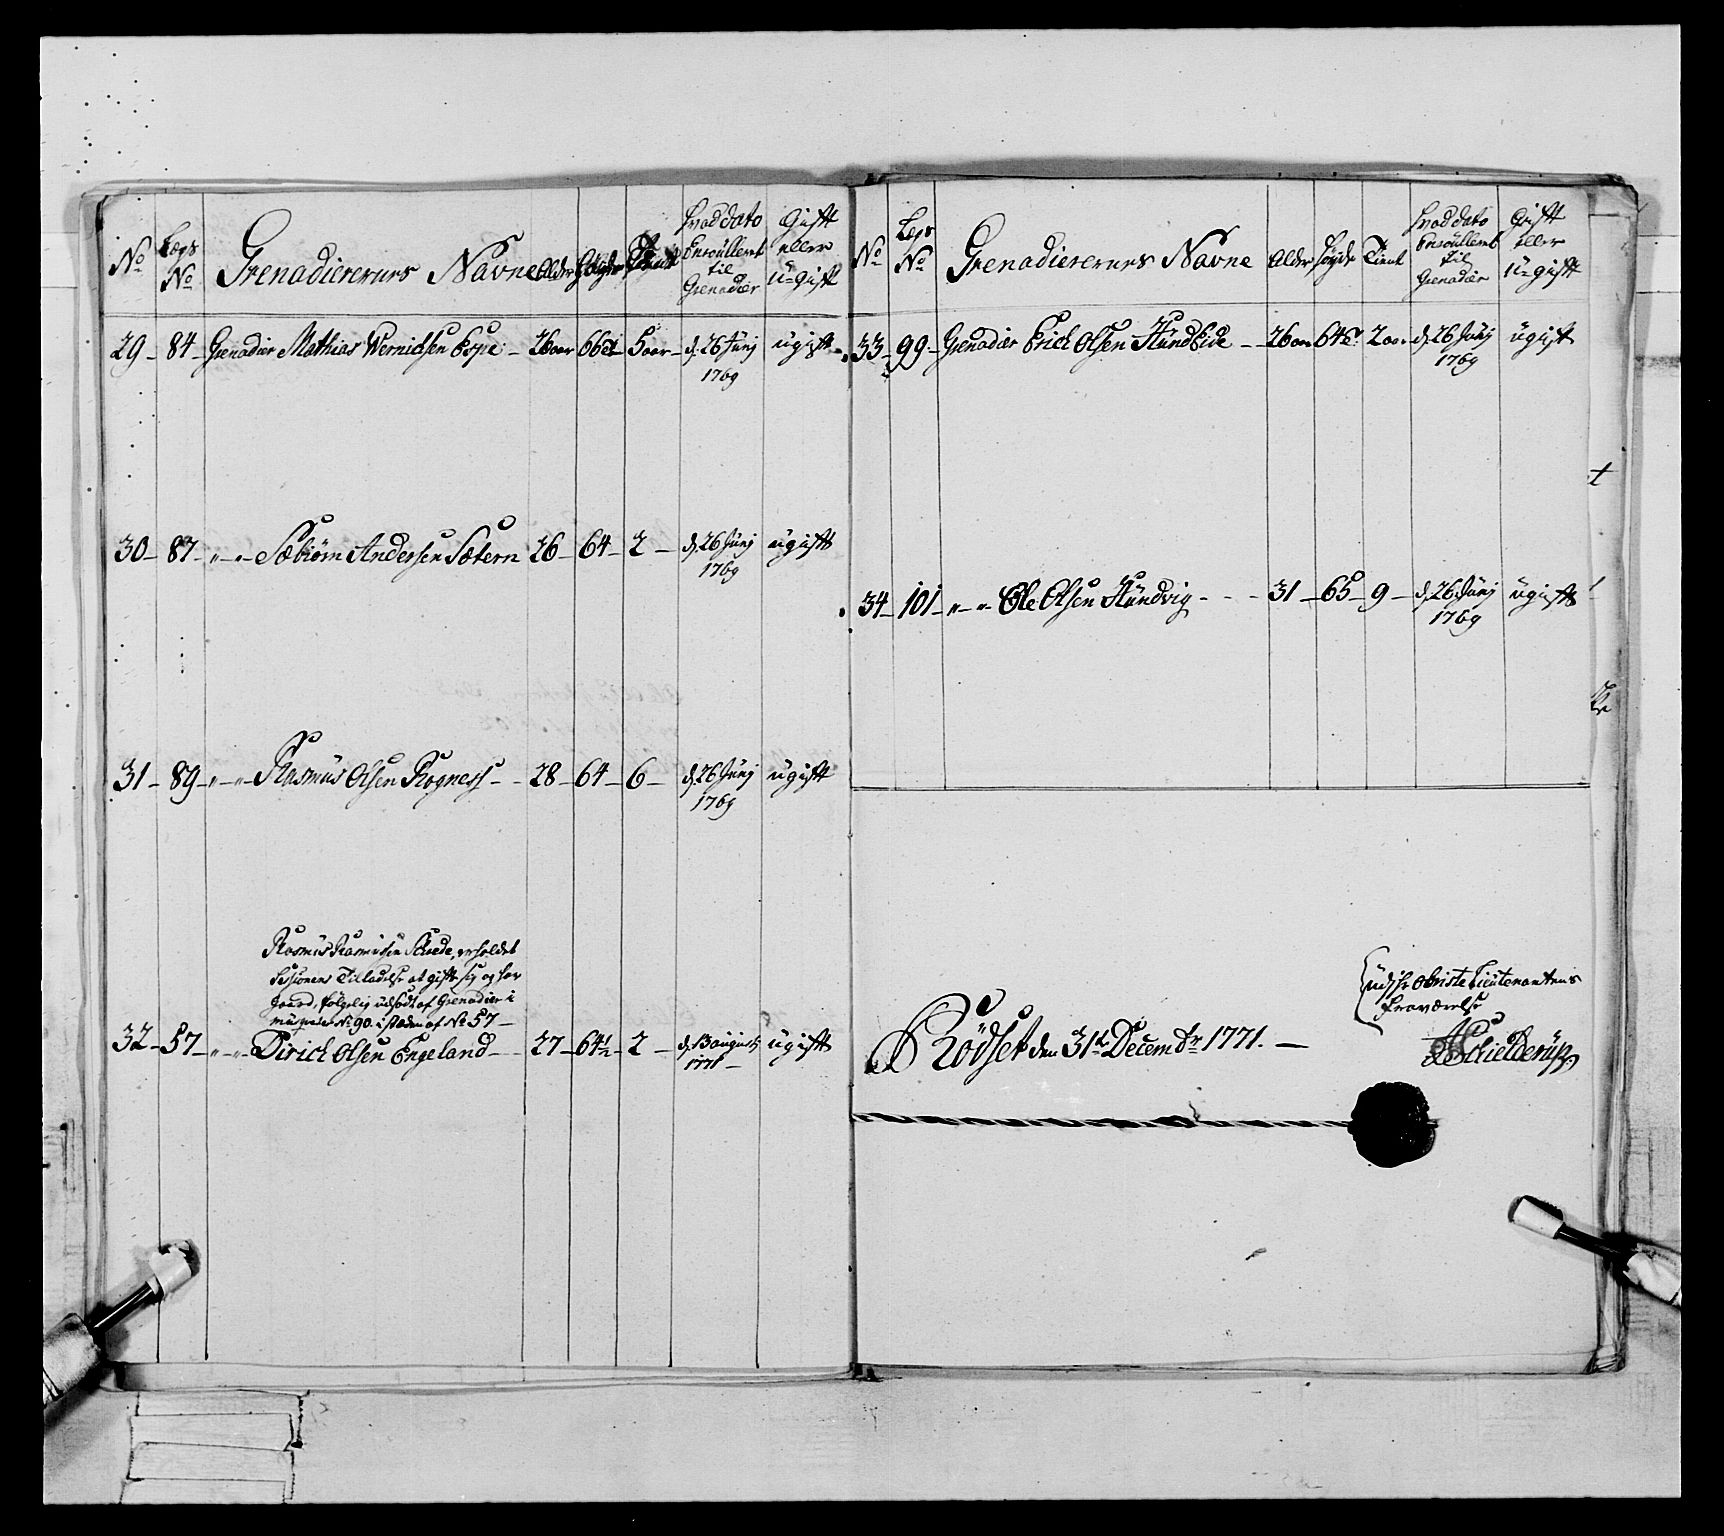 No Lægs No Grenadierernes Navne Alder Høyde Tient Hvad dato Enroulleret til Grenadier Gift eller u-gift
29 - 84 - Grenadier Mathias Wernichsen Espe - 26 aar 66 5 aar - d. 26 Junj 1769 ugift
30 - 87 - " - " - Sæbiørn Andersen Sætern 26 - 64 - 2 - d. 26 Junj 1769 ugift
31 - 89 - " - " - Rasmus Olsen Rogness - 28 - 64 - 6 - d. 26 Junj 1769 ugift
Rasmus Rasmussen erholdet
Sessionens Tilladelse at gifte sig og har
følgelig udstødt af Grenadier i
No 90. i stæden af No 57 -
32 - 57 - " - " - Dirich Olsen Engeland - 27 - 64½ - 2 - d. 13 augustj 1771 - ugift
No Lægs No Grenadierernes Navne Alder Høyde Tient Hvad dato Enroulleret til Grenadier Gift eller u-gift
33 - 99 - Grenadier Erich Olsen Hundeide - 26 aar 64 2 aar d. 26 Junj 1769 ugift
34 - 101 - " - " - Ole Olsen Hundvig - - - 31 - 65 - 9 - d. 26 Junj 1769 ugift
udj Hr Obriste Lieutenantens
Fraværelse
Rødset den 31te Decembr 1771. -
Schielderup